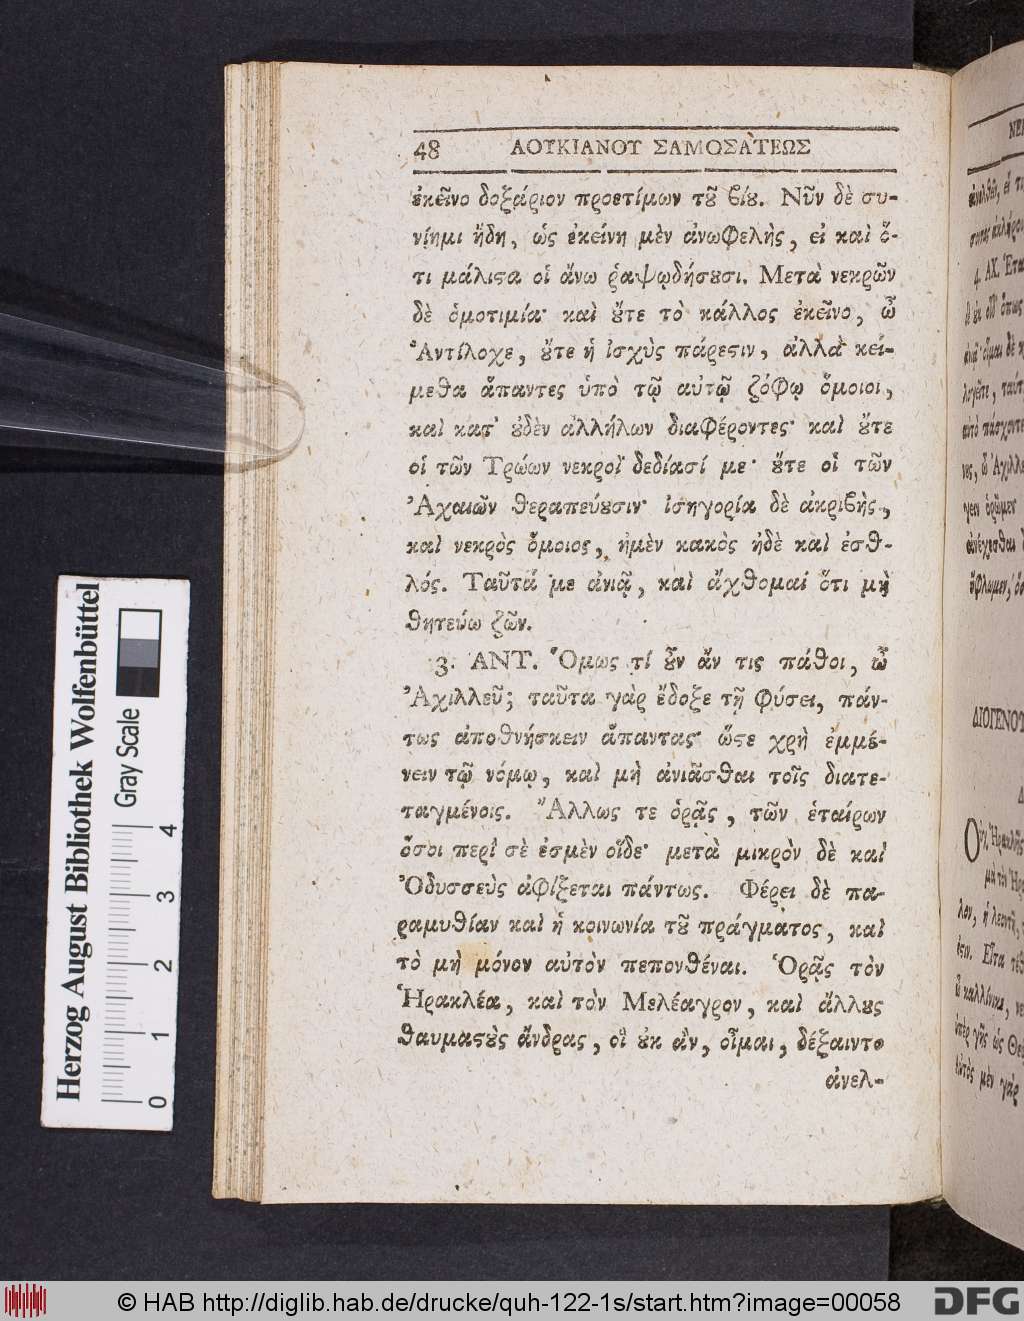 48 ΛΟΥΚΙΑΝΟΥ ΣΑΜΟΣΑΤΕΩΣ
ἐκεῖνο δοξάριον προετίμων τȣ͂ βίȣ. Νῦν δὲ συ-
νίημι ἤδη, ὡς ἐκείνη μὲν ἀνωφελὴς, εἰ καὶ ὅ-
τι μάλιϛα οἱ ἄνω ῥαψῳδήσȣσι. Μετὰ νεκρῶν
δὲ ὁμοτιμία· καὶ ȣ̓́τε τὸ κάλλος ἐκεῖνο, ὦ
Ἀντίλοχε, ȣ̓́τε ἡ ἰσχὺς πάρεϛιν, ἀλλὰ κεί-
μεθα ἅπαντες ὑπὸ τῷ αὐτῷ ζόφῳ ὅμοιοι,
καὶ κατ' ȣ̓δὲν ἀλλήλων διαφέροντες· καὶ ȣ̓́τε
οἱ τῶν Τρώων νεκροὶ δεδίασί με· ȣ̓́τε οἱ τῶν
Ἀχαιῶν θεραπεύȣσιν· ἰσηγορία δὲ ἀκριβὴς,
καὶ νεκρὸς ὅμοιος, ἠμὲν κακὸς ἠδὲ καὶ ἐσθ-
λός. Ταῦτά με ἀνιᾷ, καὶ ἄχθομαι ὅτι μὴ
θητεύω ζῶν.
3. ΑΝΤ. Ὅμως τί ȣ̓͂ν ἄν τις πάθοι, ὦ
Ἀχιλλεῦ; ταῦτα γὰρ ἔδοξε τῇ φύσει, πάν-
τως ἀποθνήσκειν ἅπαντας· ὥϛε χρὴ ἐμμέ-
νειν τῷ νόμῳ, καὶ μὴ ἀνιᾶσθαι τοῖς διατε-
ταγμένοις. Ἄλλως τε ὁρᾷς, τῶν ἑταίρων
ὅσοι περὶ σὲ ἐσμὲν οἵδε· μετὰ μικρὸν δὲ καὶ
Ὀδυσσεὺς ἀφίξεται πάντως. Φέρει δὲ πα-
ραμυθίαν καὶ ἡ κοινωνία τȣ͂ πράγματος, καὶ
τὸ μὴ μόνον αὐτὸν πεπονθέναι. Ὁρᾷς τὸν
Ἡρακλέα, καὶ τὸν Μελέαγρον, καὶ ἄλλȣς
θαυμαϛȣ̀ς ἄνδρας, οἳ ȣ̓κ ἂν, οἶμαι, δέξαιντο
ἀνελ-
Herzog August Bibliothek Wolfenbüttel
Gray Scale
0 1 2 3 4
© HAB http://diglib.hab.de/drucke/quh-122-1s/start.htm?image=00058
DFG